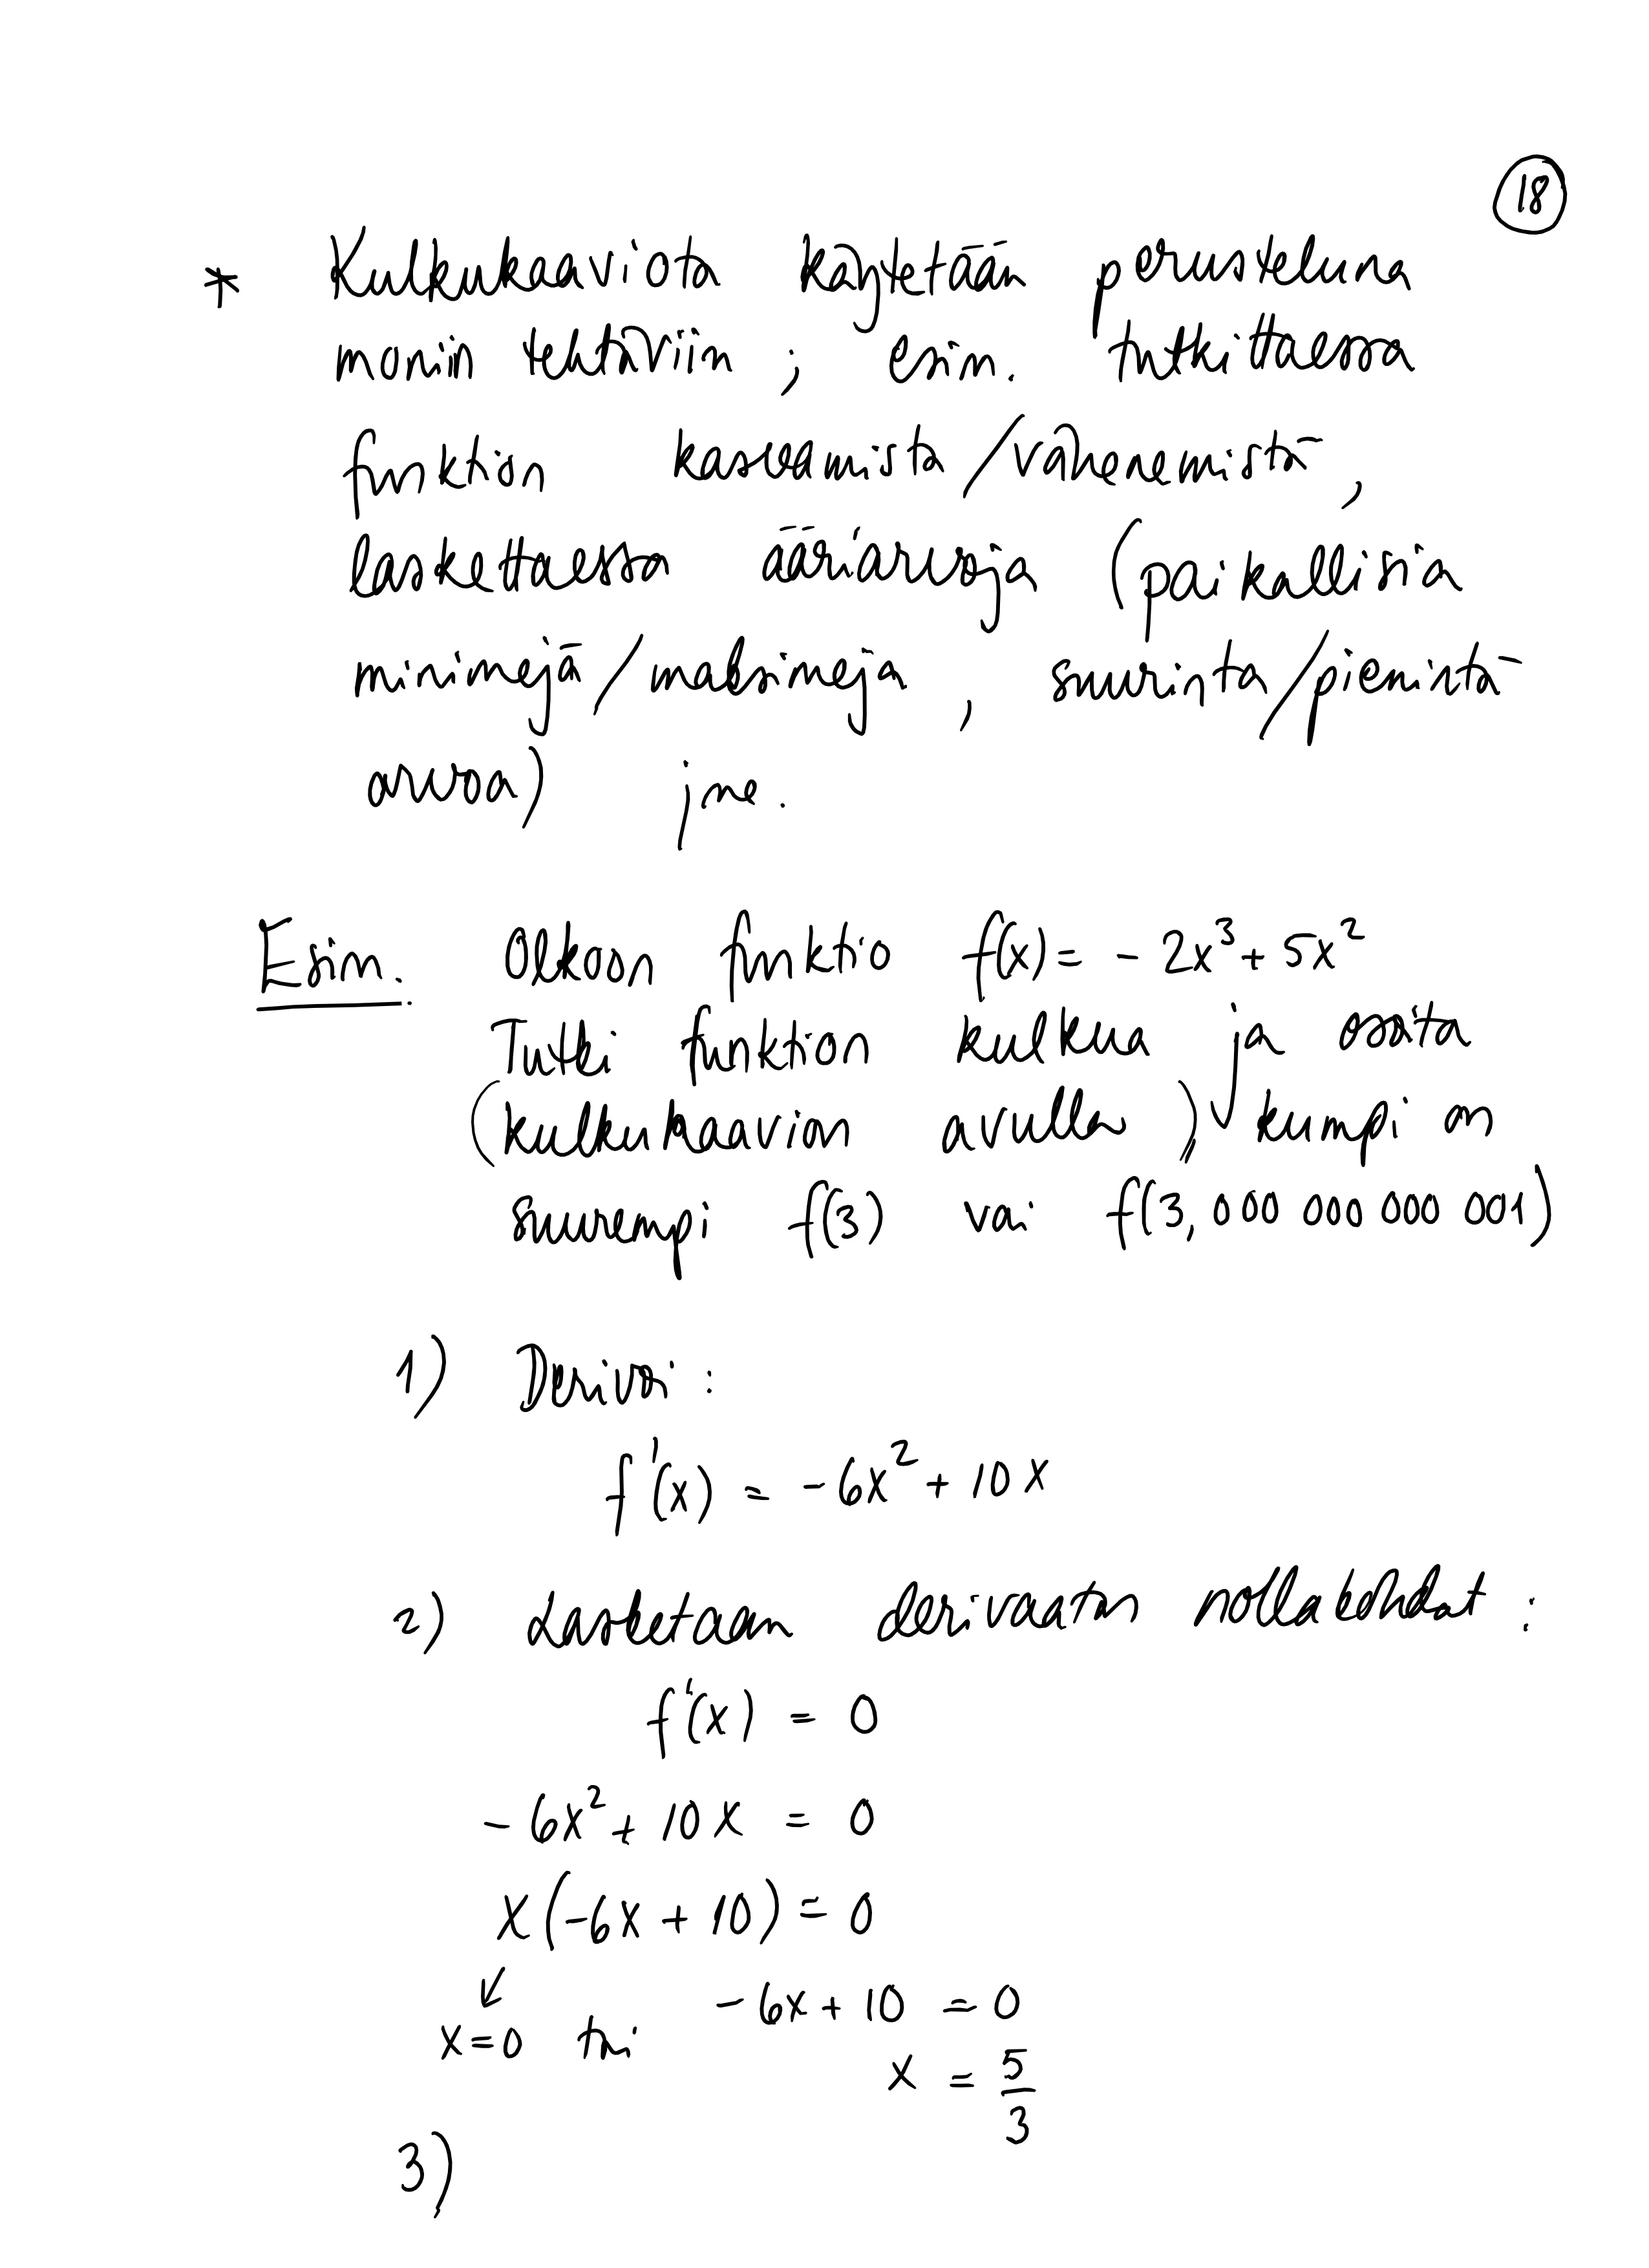 18
* Kulkukaaviota käytetään perusteluna
moniin tehtäviin ; esim. tutkittaessa
funktion kasvamista/vähenemistä ,
laskettaessa ääriarvoja (paikallisia
minimejä/maksimeja , suurinta/pienintä
arvoa) jne.
Esim. Olkoon funktio f(x) = - 2x³ + 5x²
Tutki funktion kulkua ja osoita
(kulkukaavion avulla) kumpi on
suurempi f(3) vai f(3,000 000 000 001)
1) Derivoi :
f'(x) = -6x² + 10x
2) Lasketaan derivaatan nollakohdat :
f'(x) = 0
-6x² + 10x = 0
x(-6x + 10) = 0
↙
x=0 tai -6x + 10 = 0
x = 5/3
3)